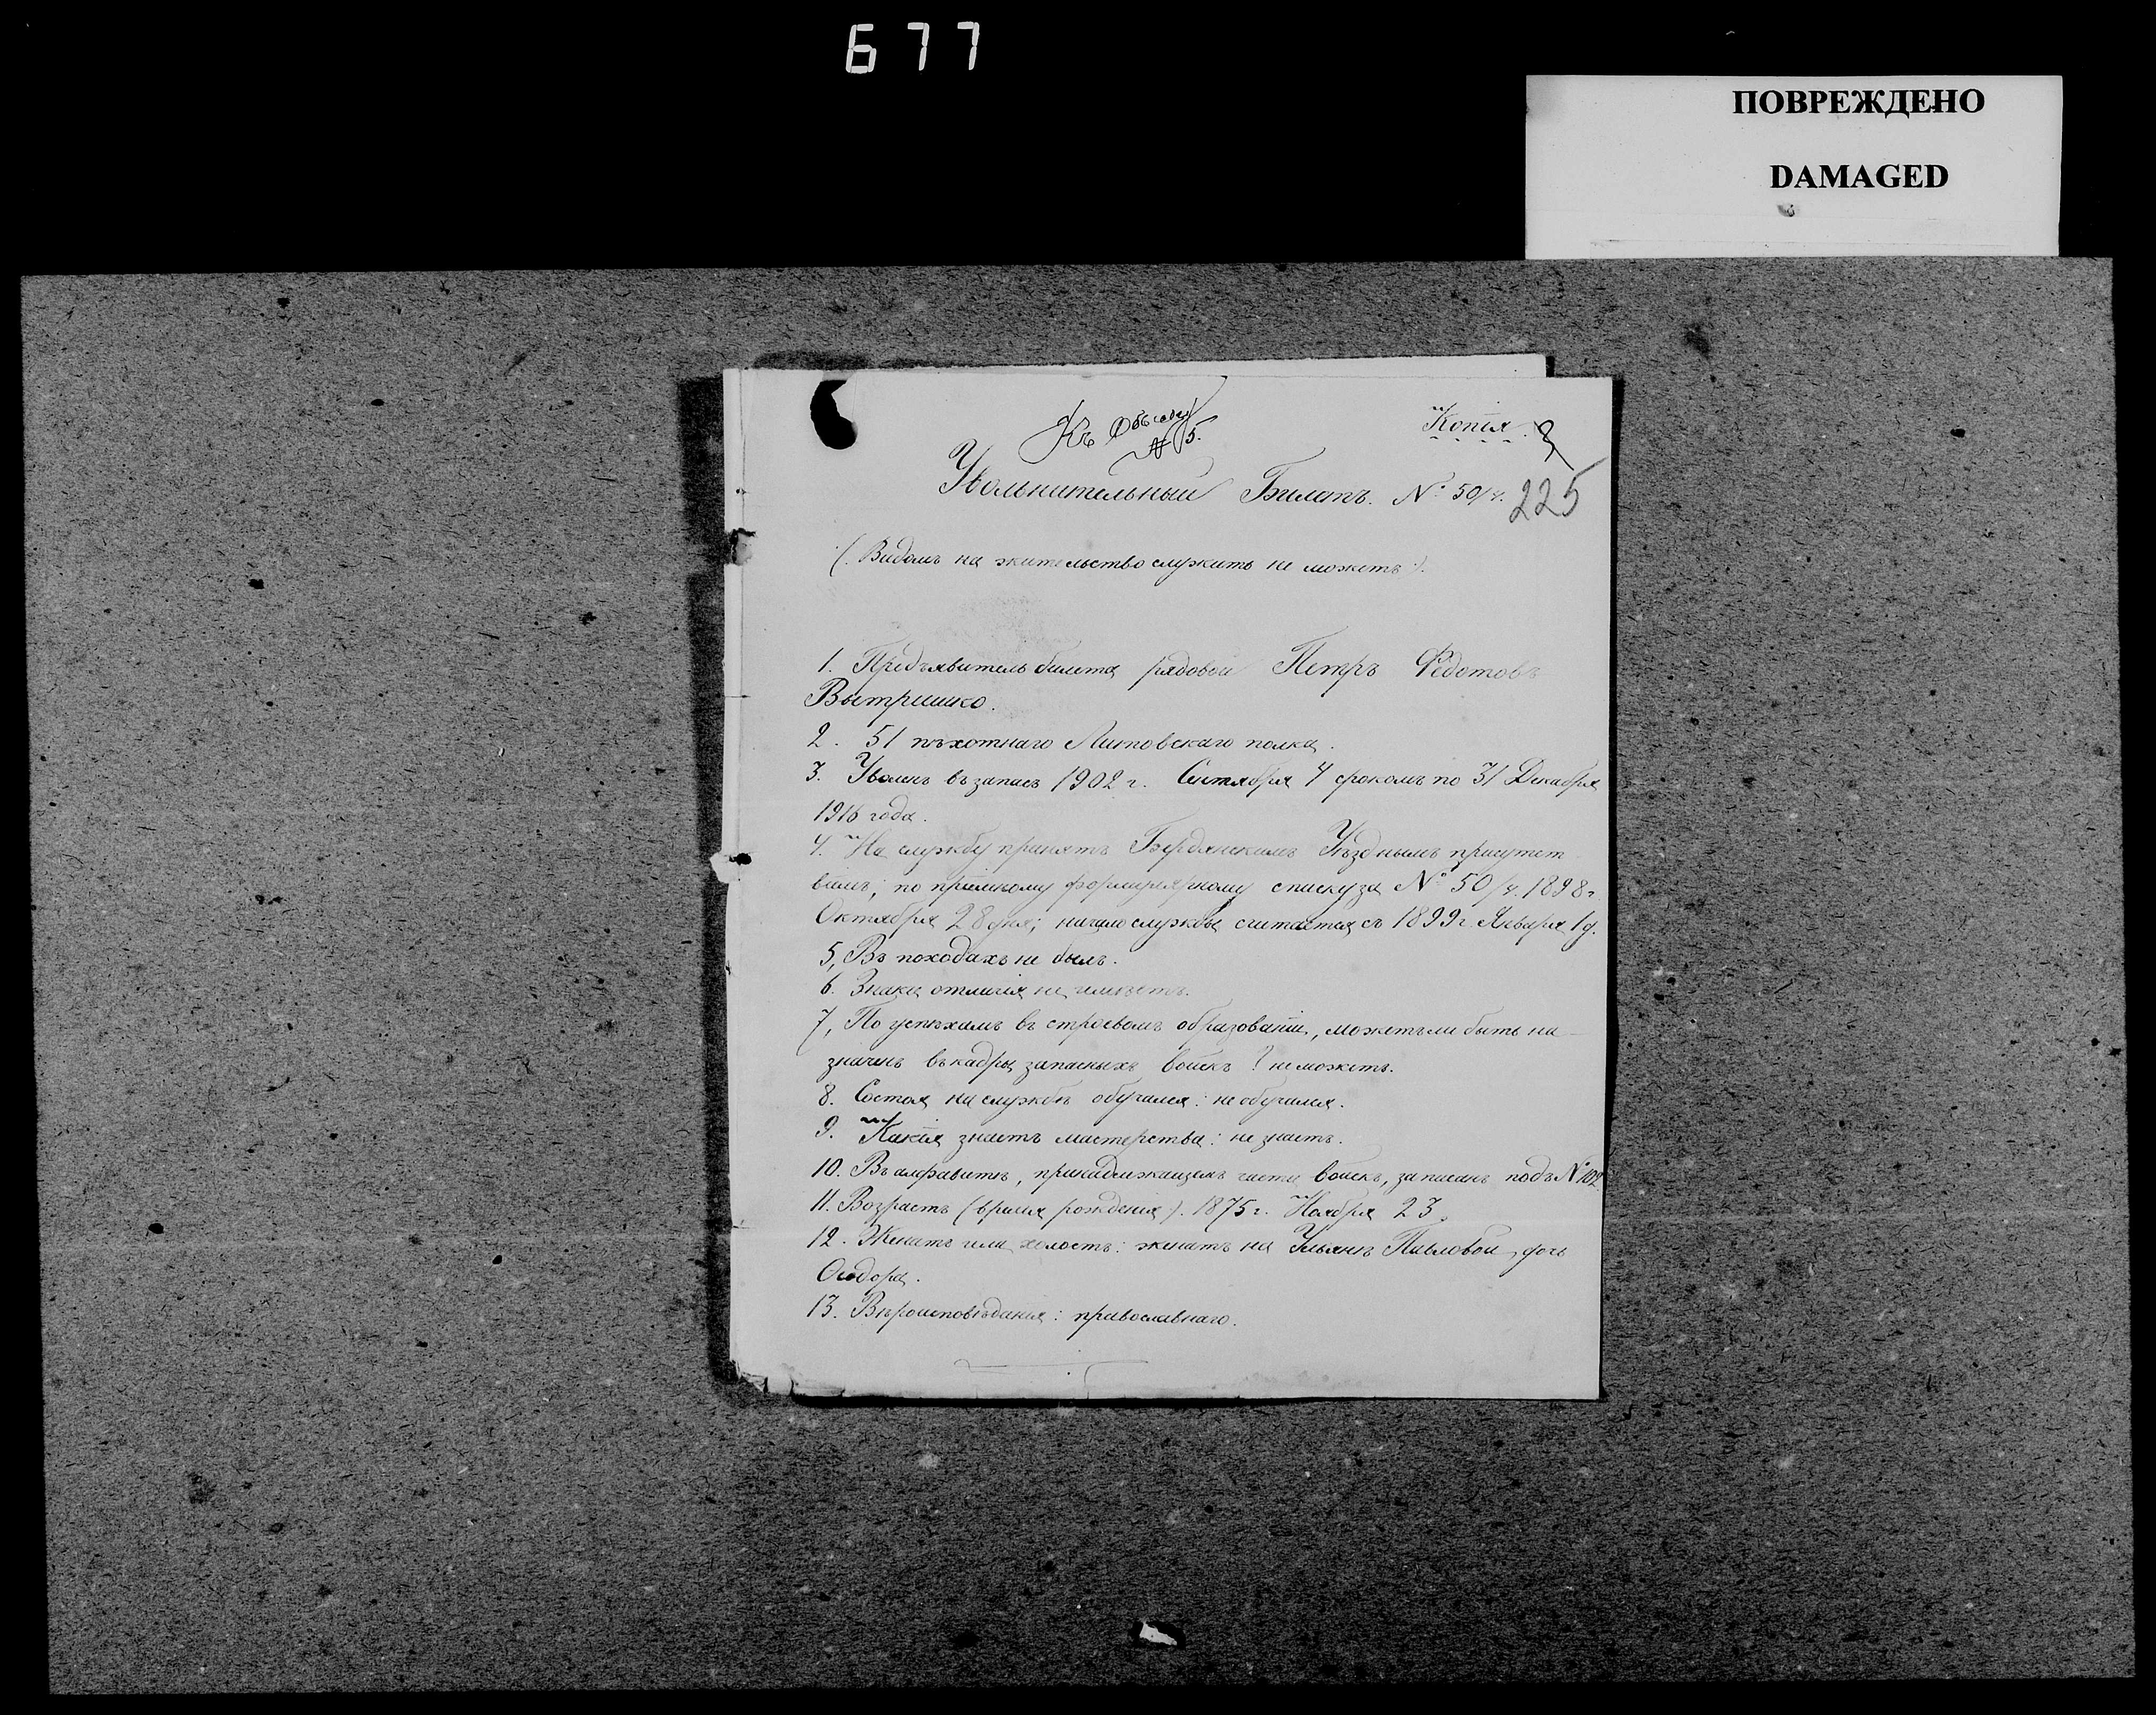 677
ПОВРЕЖДЕНО
DAMAGED
Къ Обыску
№ 5.
Копія.
225
Увольнительный Билетъ. № 50/ч.
(Видомъ на жительство служить не можетъ).
1. Предъявитель билета рядовой Петръ Федотовъ
Вытришко.
2. 51 пѣхотнаго Литовскаго полка.
3. Уволенъ въ запасъ 1902 г. Сентября 4 срокомъ по 31 Декабря
1916 года.
4. На службу принятъ Бердянскимъ Уѣзднымъ присутст
віемъ; по пріемному формулярному списку за № 50/ч. 1898 г.
Октября 28 дня; начало службы считается съ 1899 г. Января 1 д.
5, Въ походахъ не былъ.
6. Знака отличія не имѣетъ.
7, По успѣхамъ въ строевомъ образованіи, можетъ ли быть на-
значенъ въ кадры запасныхъ войскъ? не можетъ.
8. Состоя на службѣ обучался: не обучался.
9. Какія знаетъ мастерства: не знаетъ.
10. Въ алфавитѣ, принадлежащемъ части войскъ, записанъ подъ № 102.
11. Возрастъ (время рожденія). 1875 г. Ноября 23.
12. Женатъ или холостъ: женатъ на Ульянѣ Павловой, дочь
Ѳеодора.
13. Вѣроисповѣданія: православнаго.